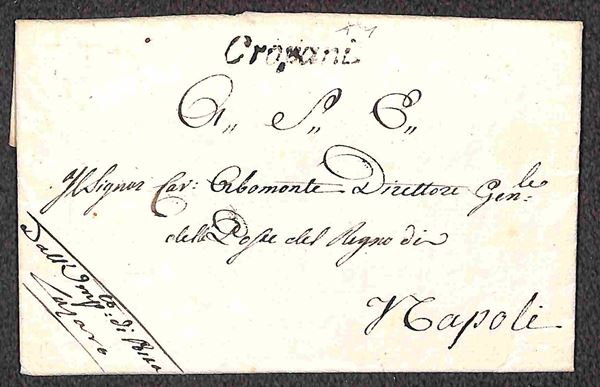 Cropani
A,, S,, E,,
Il Signor Cav: Abamonte Direttore Gen:le
delle Poste del Regno di
Napoli
Dall'Imp:to: di Posta
Lazaro